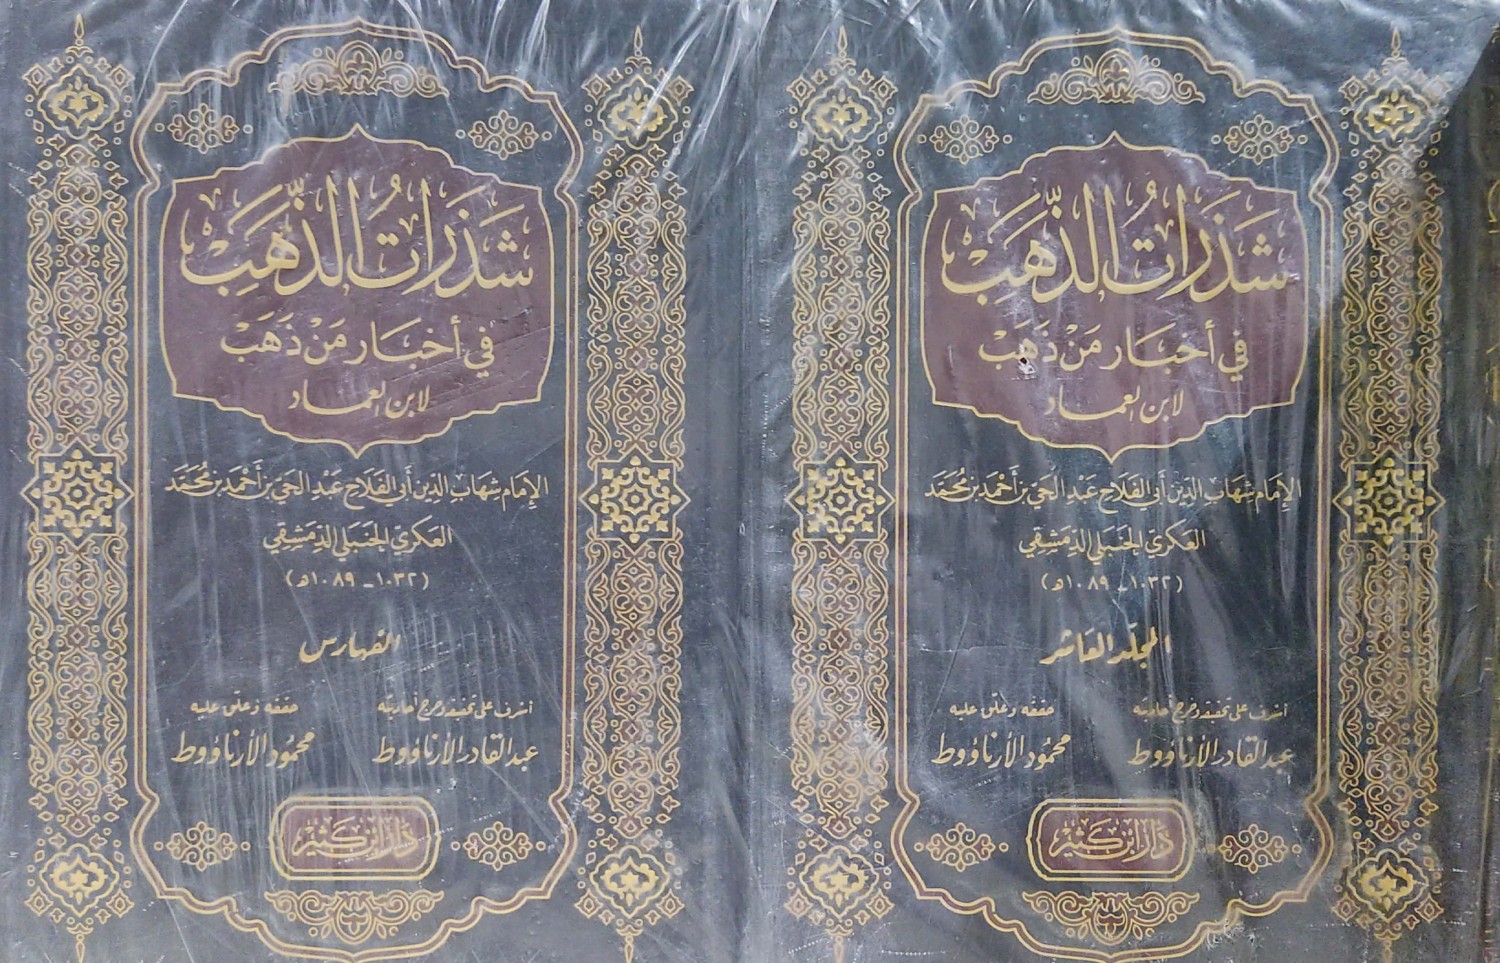 شَذَرَاتُ الذَّهَب
في أخبَار مَنْ ذَهَبْ
لابن العماد
الإمَام شِهَاب الدّين أبي الفَلَاح عَبْد الحَيّ بن أَحْمَد بن مُحَمَّد
العكري الحَنبَلي الدِّمَشِقي
(١٠٣٢ - ١٠٨٩ه)
المجلّد العَاشر
أشرف على تحقيقه وخرج أحاديثه
عبد القادر الأرناؤوط
حققه وعلق عليه
محمُود الأرناؤوط
دَار ابن كَثير
شَذَرَاتُ الذَّهَب
في أخبَار مَنْ ذَهَبْ
لابن العماد
الإمَام شِهَاب الدّين أبي الفَلَاح عَبْد الحَيّ بن أَحْمَد بن مُحَمَّد
العكري الحَنبَلي الدِّمَشِقي
(١٠٣٢ - ١٠٨٩ه)
الفهارس
أشرف على تحقيقه وخرج أحاديثه
عبد القادر الأرناؤوط
حققه وعلق عليه
محمُود الأرناؤوط
دَار ابن كَثير